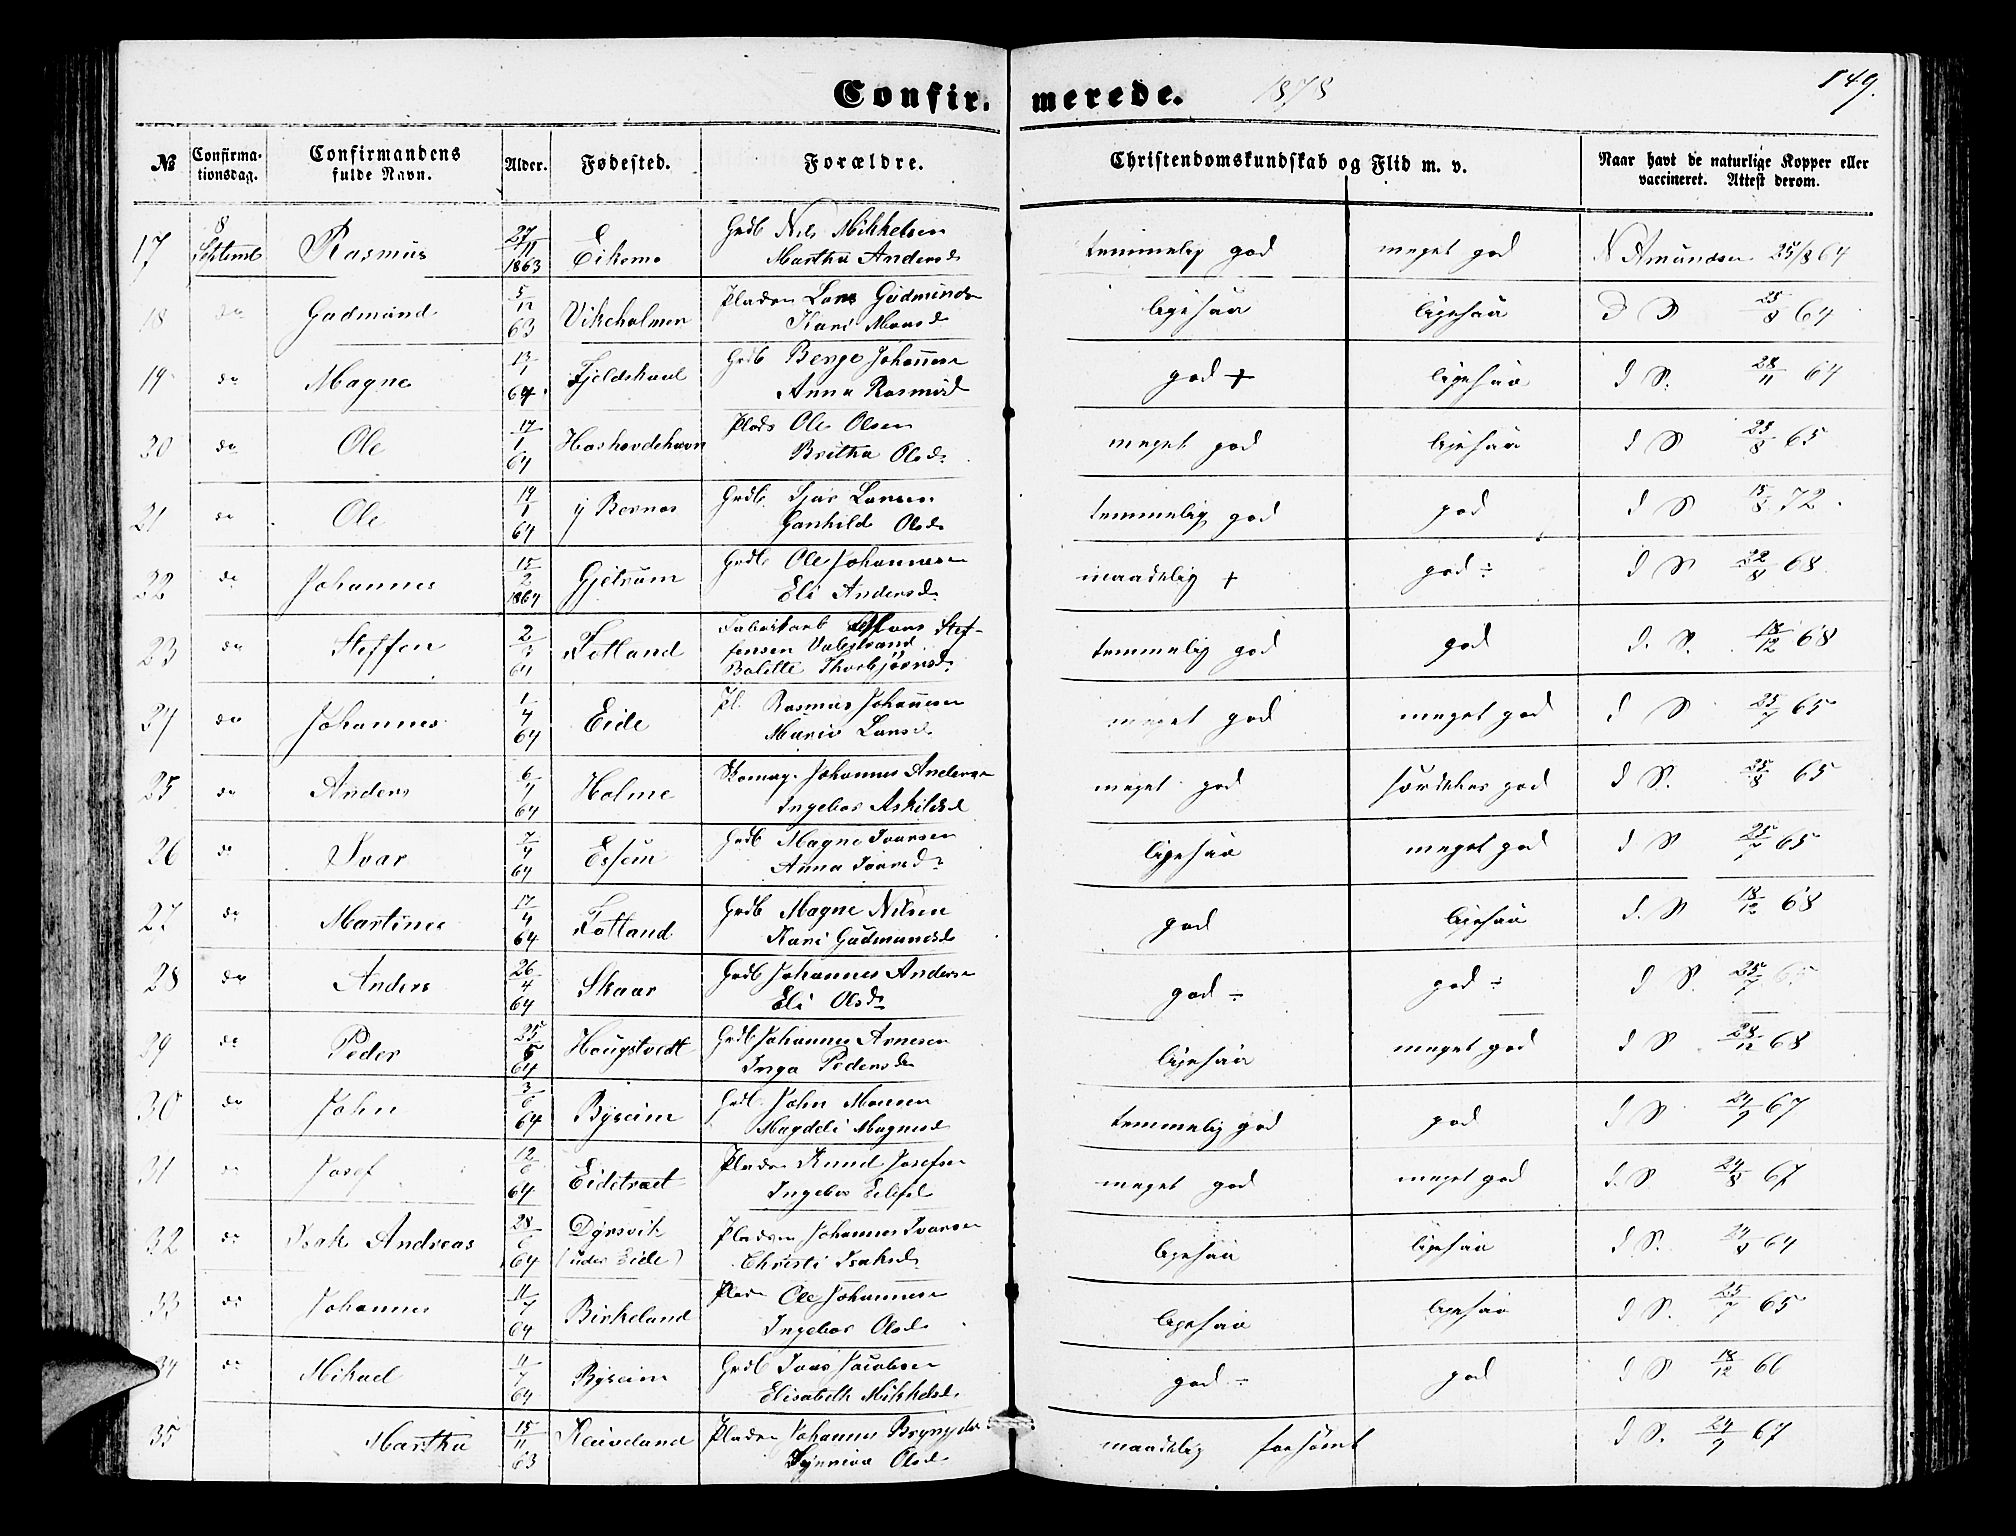 Confirmerede. 1878 149.
№ Confirmationsdag. Confirmandens fulde Navn. Alder. Fødested. Forældre. Christendomskundskab og Flid m. v. Naar havt de naturlige Kopper eller vaccineret. Attest derom.
17 8 Septembr Rasmus 27/11 1863 Eikemo Grdb Nils Mikkelsen temmelig god meget god N Amundsen 25/8 64
Martha Andersd
18 do Gudmund 5/12 63 Vikeholmen Pladsm Lars Gudmunds ligesaa ligesaa D S 25/8 64
Kari Monsd
19 do Magne 13/1 64 Fjeldskaal Grdb Berge Johannesen god + ligesaa d S. 28/11 64
Anna Rasmusd
20 do Ole 17/1 64 Plads Ole Olsen meget god ligesaa d S 25/8 65
Britha Olsd.
21 do Ole 19/1 64 y Bernes Grdb. Larsen temmelig god god d S 15/8 72.
Gunhild Olsd.
22 do Johannes 15/2 1864 Gjetrum Grdb Ole Johannesen maadelig + god ÷ d S 22/8 68
Eli Andersd.
23 do Steffen 2/3 64 Fotland Stef- temmelig god god d. S. 18/12 68
fensen Valestrand
Bolette Thorbjørnsd.
24 do Johannes 1/4 64 Eide Pl. Rasmus Johannesen meget god meget god d S 25/7 65
Mario Larsd.
25 do Anders 6/4 64 Holme Skomag. Johannes Andersen meget god særdeles god d S. 25/8 65
Ingebor Askildsd
26 do Ivar 7/4 64 Grdb Magne Ivarsen ligesaa meget god d S 25/7 65
Anna Ivarsd.
27 do Martines 17/4 64 Fotland Grdb Magne Nilsen god ligesaa d. S 18/12 68
Kari Gudmundsd
28 do Anders 26/4 64 Skaar Grdb Johannes Andersen god ÷ god ÷ d S. 25/7 65
Eli Olsd.
29 do Peder 25/5 64 Haugstvedt Grdb Johannes Arnesen ligesaa meget god d S 28/12 68
Inga Pedersd.
30 do John 3/6 64 Byrcim Grdb. John Monsen temmelig god god d S. 24/9 67
Magdeli Magnesd
31 do Josef 12/6 64 Eidetræet Pladsm Knud Josefsen meget god meget god d. S. 24/8 67
Ingebor
32 do Isak Andreas 28/6 64 Dyrsvik Pladsm Johannes Ivarsen ligesaa ligesaa d S. 24/8 64
(under Eide) Christi Isaksd.
33 do Johannes 11/7 64 Birkeland Plads Ole Johannesen ligesaa ligesaa d S. 25/7 65
Ingebor Olsd.
34 do Mikael 11/7 64 Byrcim Grdb Jacobsen god ÷ god d S 18/12 66
Elisabeth Mikkelsd.
35 Martha 15/11 63 Pladsm Johannes maadelig forsømt d S. 24/9 67
Synneva Olsd.